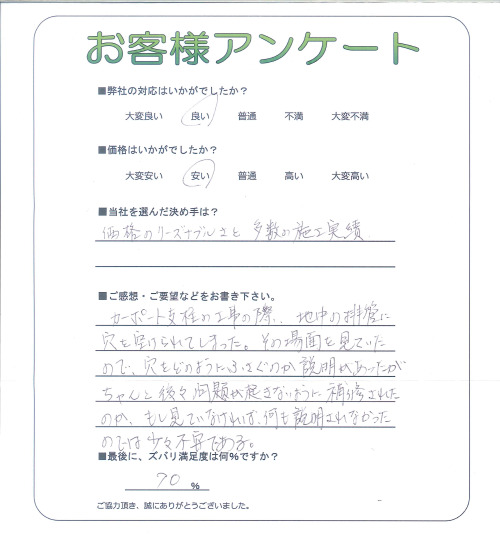 お客様アンケート
■弊社の対応はいかがでしたか？
大変良い 良い 普通 不満 大変不満
■価格はいかがでしたか？
大変安い 安い 普通 高い 大変高い
■当社を選んだ決め手は？
価格のリーズナブルさと 多数の施工実績
■ご感想・ご要望などをお書き下さい。
カーポート支柱の工事の際、地中の排管に
穴を空けられてしまった。その場面を見ていた
ので、穴をどのようにふさぐのか説明があったが
ちゃんと後々問題が起きないように補修された
のか、もし見ていなければ、何も説明されなかった
のでは少々不安である。
■最後に、ズバリ満足度は何%ですか？
70 %
ご協力頂き、誠にありがとうございました。